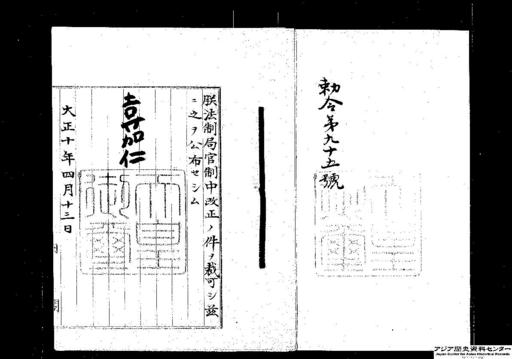 勅令第九十五號
朕法制局官制中改正ノ件ヲ裁可シ茲
ニ之ヲ公布セシム
嘉仁
天皇御璽
大正十年四月十三日
内閣
アジア歴史資料センター
Japan Center for Asian Historical Records